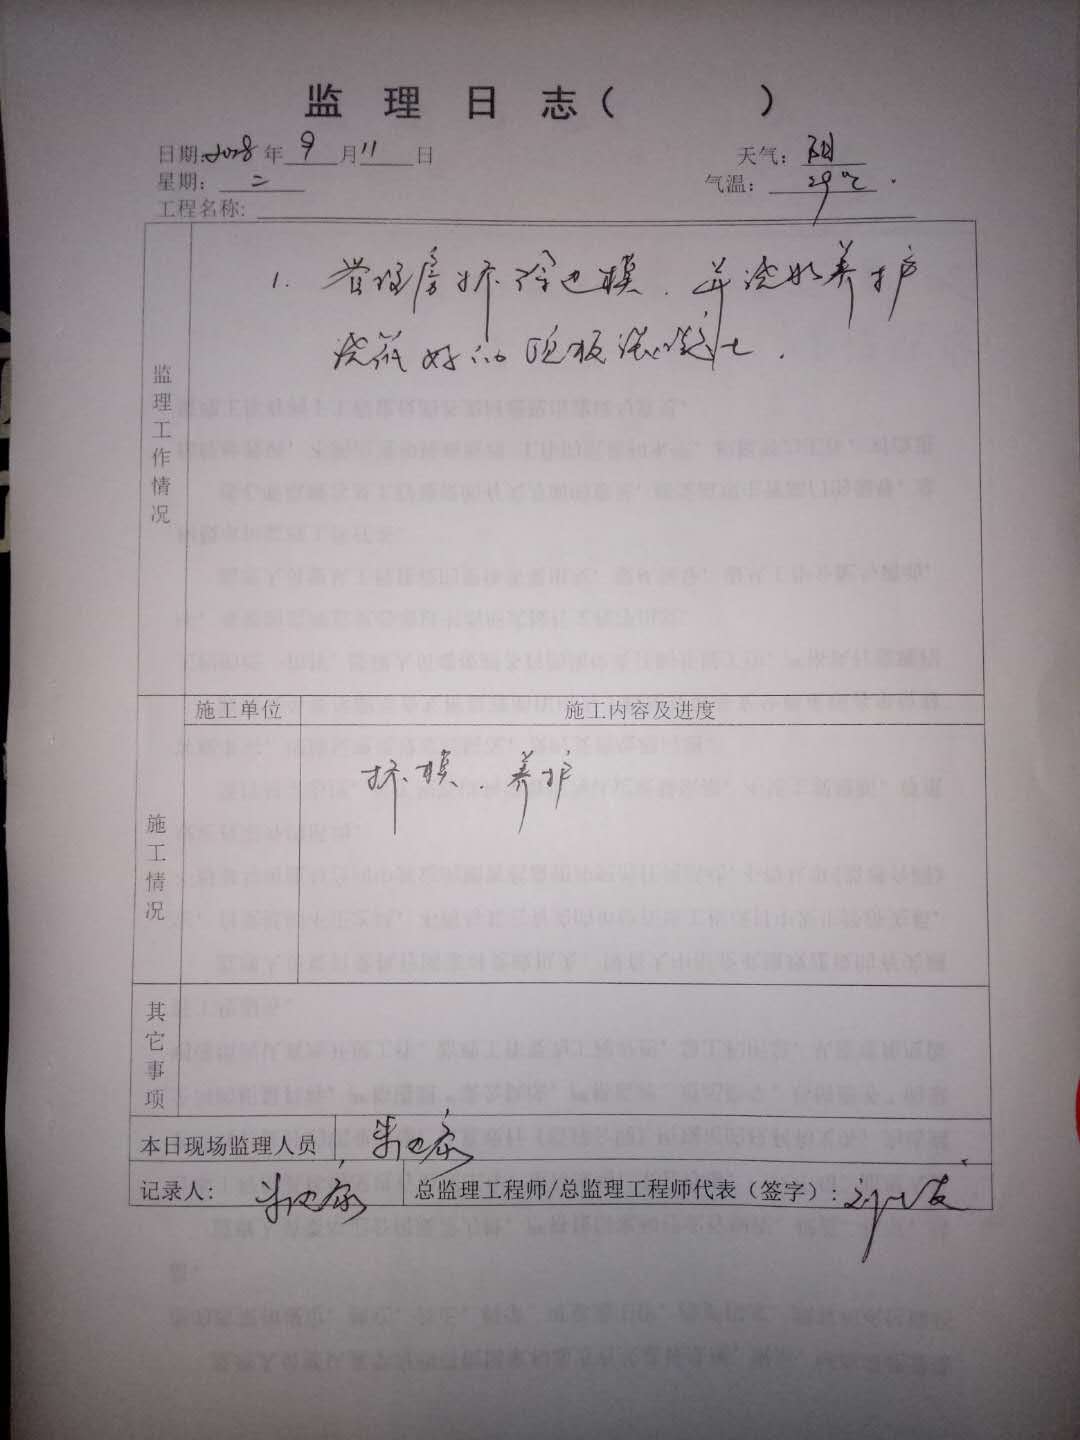 监理日志（ ）
日期: 2018年 9 月 11 日 天气: 阴
星期: 二 气温: 29℃.
工程名称:
监理工作情况
1. 管理房拆除边模. 并浇水养护
浇筑好的顶板混凝土.
施工单位 施工内容及进度
施工情况
拆模. 养护
其它事项
本日现场监理人员
记录人: 总监理工程师/总监理工程师代表（签字）: